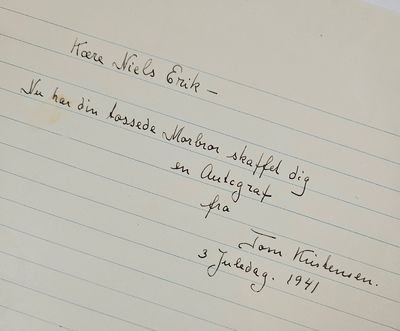 Kære Niels Erik –
Nu har din tossede Morbror skaffet dig
en Autograf
fra
Tom Kristensen.
3 Juledag. 1941